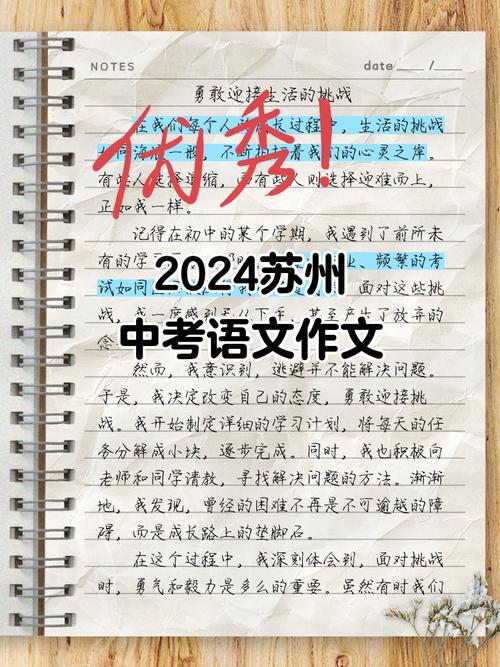 NOTES
date___/___
勇敢迎接生活的挑战
优秀!
在我们每个人的成长过程中，生活的挑战
如同海浪一般，不断拍打着我们的心灵之岸。
有些人选择退缩，而有些人则选择迎难而上，
正如我一样。
记得在初中的某个学期，我遇到了前所未
有的学习 上、频繁的考
2024苏州
试如同 面对这些挑
战，我一度感到无从下手，甚至产生了放弃的
中考语文作文
念
然而，我意识到，逃避并不能解决问题。
于是，我决定改变自己的态度，勇敢迎接挑
战。我开始制定详细的学习计划，将每天的任
务分解成小块，逐步完成。同时，我也积极向
老师和同学请教，寻找解决问题的方法。渐渐
地，我发现，曾经的困难不再是不可逾越的障
碍，而是成长路上的垫脚石。
在这个过程中，我深刻体会到，面对挑战
时，勇气和毅力是多么的重要。虽然有时我们